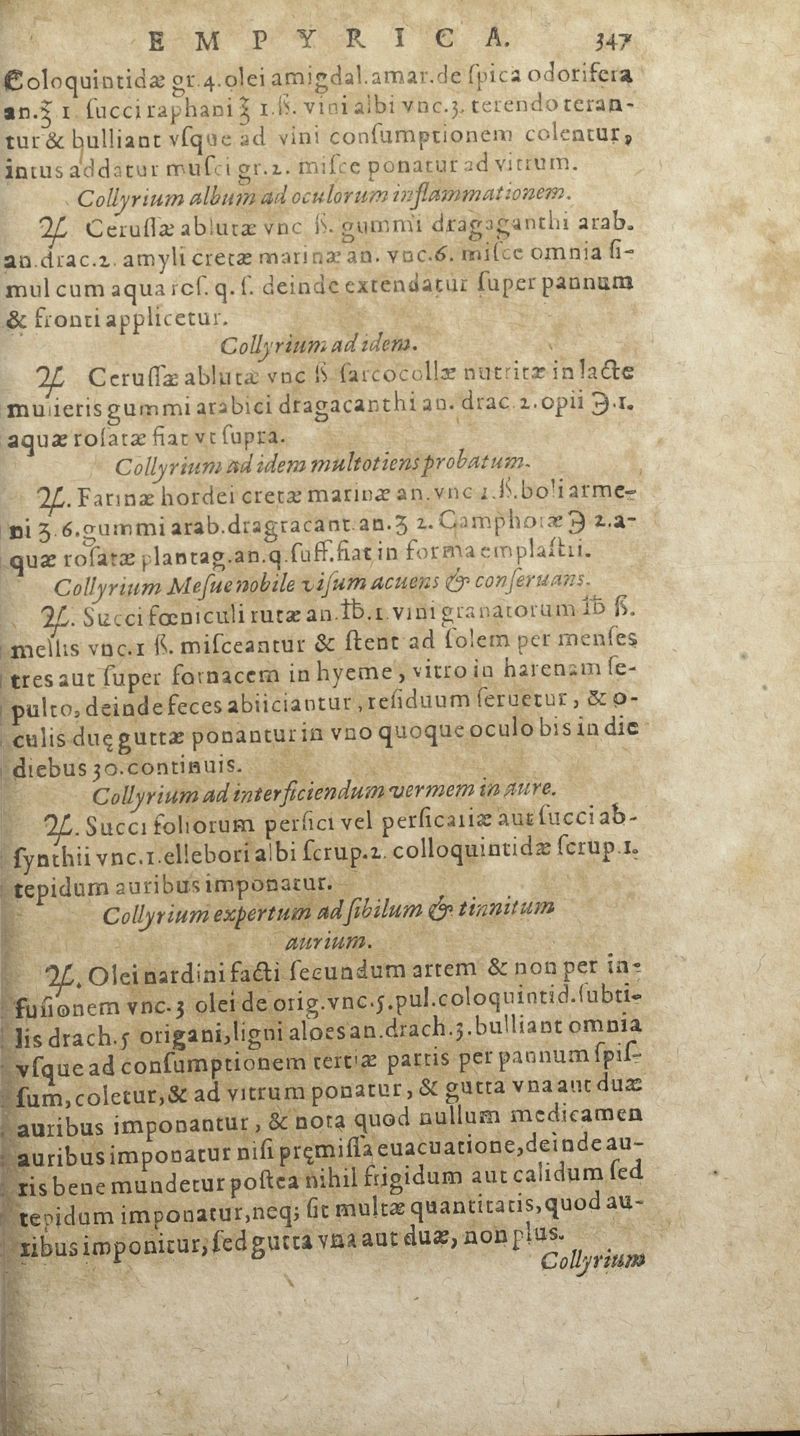 EMPYRICA. 347
Coloquintidæ gr.4.olei amigdal.amar.de ſpica odorifera
an.℥ 1 ſucci raphani ℥ 1.ß. vini albi vnc.3. terendo teran-
tur & bulliant vſque ad vini conſumptionem colentur,
intus addatur muſci gr.2. miſce ponatur ad vitrum.
Collyrium album ad oculorum inflammationem.
℞ Ceruſſæ ablutæ vnc ß. gummi dragaganthi arab.
an.drac.2. amyli cretæ marinæ an. vnc.6. miſce omnia ſi-
mul cum aqua roſ. q.ſ. deinde extendatur ſuper pannum
& fronti applicetur.
Collyrium ad idem.
℞ Ceruſſæ ablutæ vnc ß ſarcocollæ nutritæ in lacte
mulieris gummi arabici dragacanthi an. drac.2.opii ℈.1.
aquæ roſatæ fiat vt ſupra.
Collyrium ad idem multotiens probatum.
℞. Farinæ hordei cretæ marinæ an.vnc 1.ß.boli arme-
ni ʒ.6.gummi arab.dragracant.an.ʒ 2.Camphoræ ℈ 2.a-
quæ roſatæ plantag.an.q.ſuff.fiat in forma emplaſtri.
Collyrium Meſue nobile viſum acuens & conſeruans.
℞. Succi fœniculi rutæ an.℔.1 vini granatorum ℔ ß.
mellis vnc.1 ß. miſceantur & ſtent ad ſolem per menſes
tres aut ſuper fornacem in hyeme, vitro in harenam ſe-
pulto, deinde feces abiiciantur, reſiduum ſeruetur, & o-
culis duę guttæ ponantur in vno quoque oculo bis in die
diebus 30.continuis.
Collyrium ad interficiendum vermem in aure.
℞. Succi foliorum perſici vel perſicariæ aut ſucci ab-
ſynthii vnc.1.ellebori albi ſcrup.2. colloquintidæ ſcrup.1.
tepidum auribus imponatur.
Collyrium expertum ad ſibilum & tinnitum
aurium.
℞. Olei nardini facti ſecundum artem & non per in-
fuſionem vnc.3 olei de orig.vnc.5.pul.coloquintid.ſubti-
lis drach.5 origani,ligni aloes an.drach.3.bulliant omnia
vſque ad conſumptionem tertiæ partis per pannum ſpiſ-
ſum,coletur,& ad vitrum ponatur, & gutta vna aut duæ
auribus imponantur, & nota quod nullum medicamen
auribus imponatur niſi pręmiſſa euacuatione,deinde au-
ris bene mundetur poſtea nihil frigidum aut calidum ſed
tepidum imponatur,neq; ſit multæ quantitatis,quod au-
ribus imponitur,ſed gutta vna aut duæ, non plus.
Collyrium